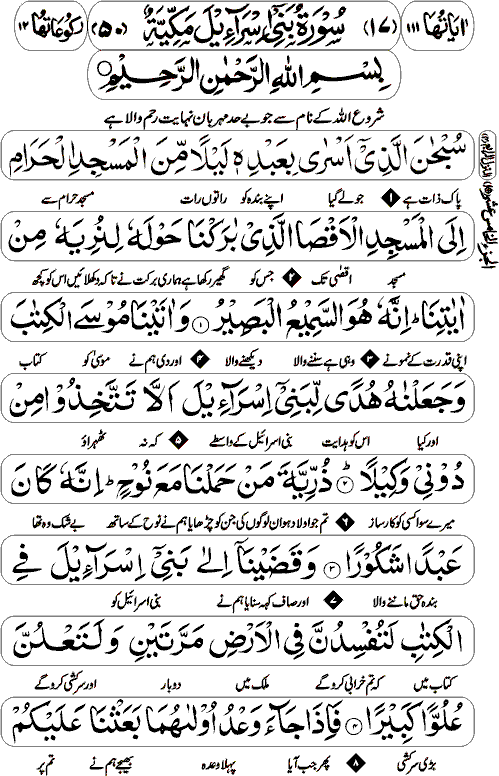 اٰیاتھا ۱۱۱ (۱۷) سُوْرَةُ بَنِیْۤ اِسْرَآءِیْلَ مَكِّیَّةٌ (۵۰) رکوعاتھا ۱۲
بِسْمِ اللّٰهِ الرَّحْمٰنِ الرَّحِیْمِ
شروع اللہ کے نام سے جو بے حد مہربان نہایت رحم والا ہے
سُبْحٰنَ الَّذِیْۤ اَسْرٰى بِعَبْدِهٖ لَیْلًا مِّنَ الْمَسْجِدِ الْحَرَامِ
پاک ذات ہے ۱ جو لے گیا اپنے بندہ کو راتوں رات مسجد حرام سے
اِلَى الْمَسْجِدِ الْاَقْصَا الَّذِیْ بٰرَكْنَا حَوْلَهٗ لِنُرِیَهٗ مِنْ
مسجد اقصٰی تک ۲ جس کو گھیر رکھا ہے ہماری برکت نے تاکہ دکھلائیں اس کو کچھ
اٰیٰتِنَا ؕ اِنَّهٗ هُوَ السَّمِیْعُ الْبَصِیْرُ ۱ وَ اٰتَیْنَا مُوْسَى الْكِتٰبَ
اپنی قدرت کے نمونے ۳ وہی ہے سننے والا دیکھنے والا ۴ اور دی ہم نے موسیٰ کو کتاب
وَ جَعَلْنٰهُ هُدًى لِّبَنِیْۤ اِسْرَآءِیْلَ اَلَّا تَتَّخِذُوْا مِنْ
اور کیا اس کو ہدایت بنی اسرائیل کے واسطے ۵ کہ نہ ٹھہراؤ
دُوْنِیْ وَكِیْلًا ۲ ذُرِّیَّةَ مَنْ حَمَلْنَا مَعَ نُوْحٍ ؕ اِنَّهٗ كَانَ
میرے سوا کسی کو کارساز ۶ تم جو اولاد ہو ان لوگوں کی جن کو چڑھایا ہم نے نوح کے ساتھ بے شک وہ تھا
عَبْدًا شَكُوْرًا ۳ وَ قَضَیْنَاۤ اِلٰى بَنِیْۤ اِسْرَآءِیْلَ فِی
بندہ حق ماننے والا ۷ اور صاف کہہ سنایا ہم نے بنی اسرائیل کو
الْكِتٰبِ لَتُفْسِدُنَّ فِی الْاَرْضِ مَرَّتَیْنِ وَ لَتَعْلُنَّ
کتاب میں کہ تم خرابی کرو گے ملک میں دو بار اور سرکشی کرو گے
عُلُوًّا كَبِیْرًا ۴ فَاِذَا جَآءَ وَعْدُ اُوْلٰىهُمَا بَعَثْنَا عَلَیْكُمْ
بڑی سرکشی ۸ پھر جب آیا پہلا وعدہ بھیجے ہم نے تم پر